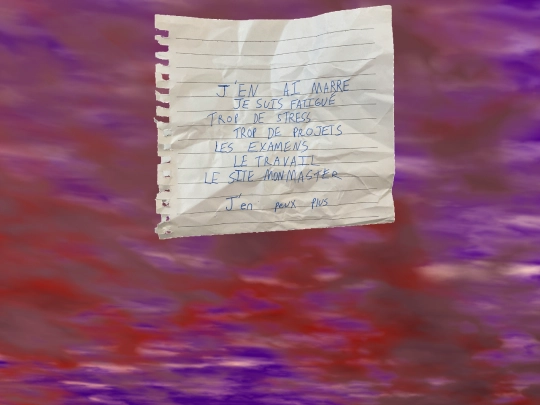 J'EN AI MARRE
JE SUIS FATIGUÉ
TROP DE STRESS
TROP DE PROJETS
LES EXAMENS
LE TRAVAIL
LE SITE MONMASTER
J'en peux plus